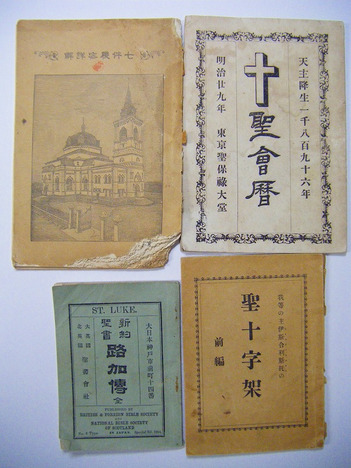 七件機密詳解
天主降生一千八百九十六年
聖會曆
明治廿九年 東京聖保祿大堂
ST. LUKE.
大日本神戸市京町十四番
新約
聖書
路加傳
全
大英國
北英國
聖書會社
PUBLISHED BY
BRITISH & FOREIGN BIBLE SOCIETY
AND
NATIONAL BIBLE SOCIETY
OF SCOTLAND
我等の主
聖十字架
前編